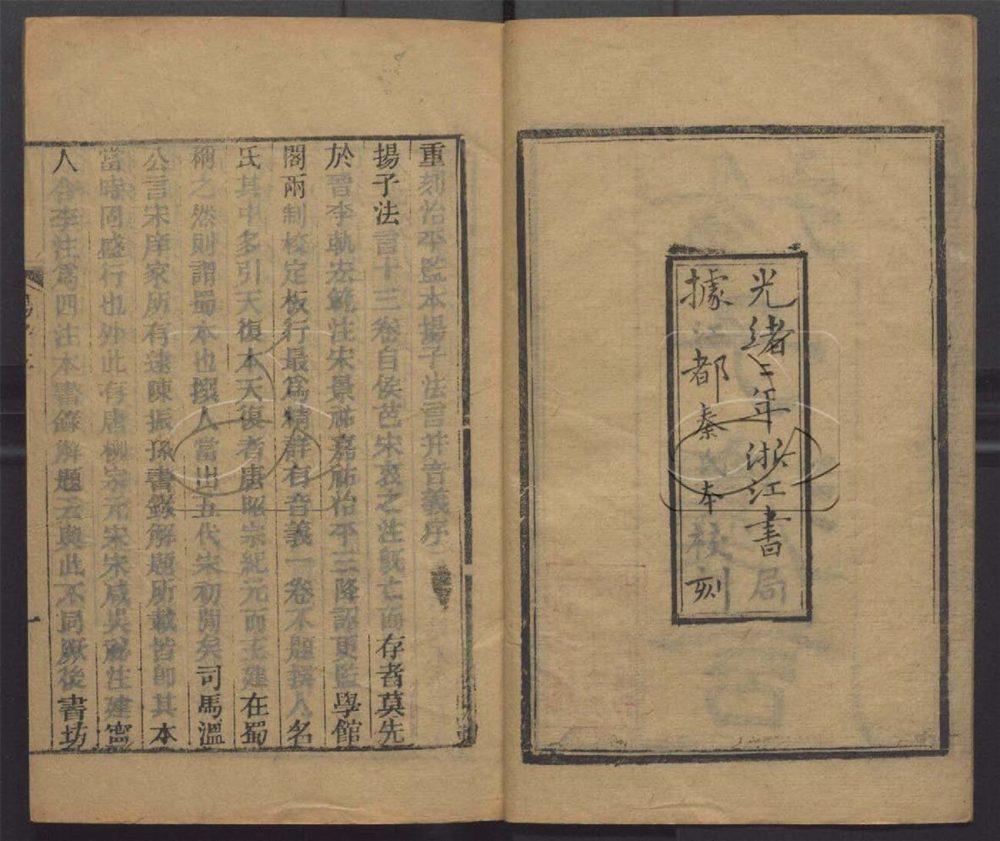 光緒二年浙江書局
據江都秦氏本校刻
重刻治平監本揚子法言并音義序
揚子法言十三卷自侯芭宋衷之注既亡而存者莫先
於晉李軌宏範注宋景祐嘉祐治平三降詔更監學館
閣兩制校定板行最爲精詳有音義一卷不題撰人名
氏其中多引天復本天復者唐昭宗紀元而王建在蜀
稱之然則謂蜀本也撰人當出五代宋初間矣司馬溫
公言宋庠家所有逮陳振孫書錄解題所載皆即其本
當時同盛行也外此有唐柳宗元宋宋咸吳祕注建寧
人合李注爲四注本書錄解題云與此不同厥後書坊